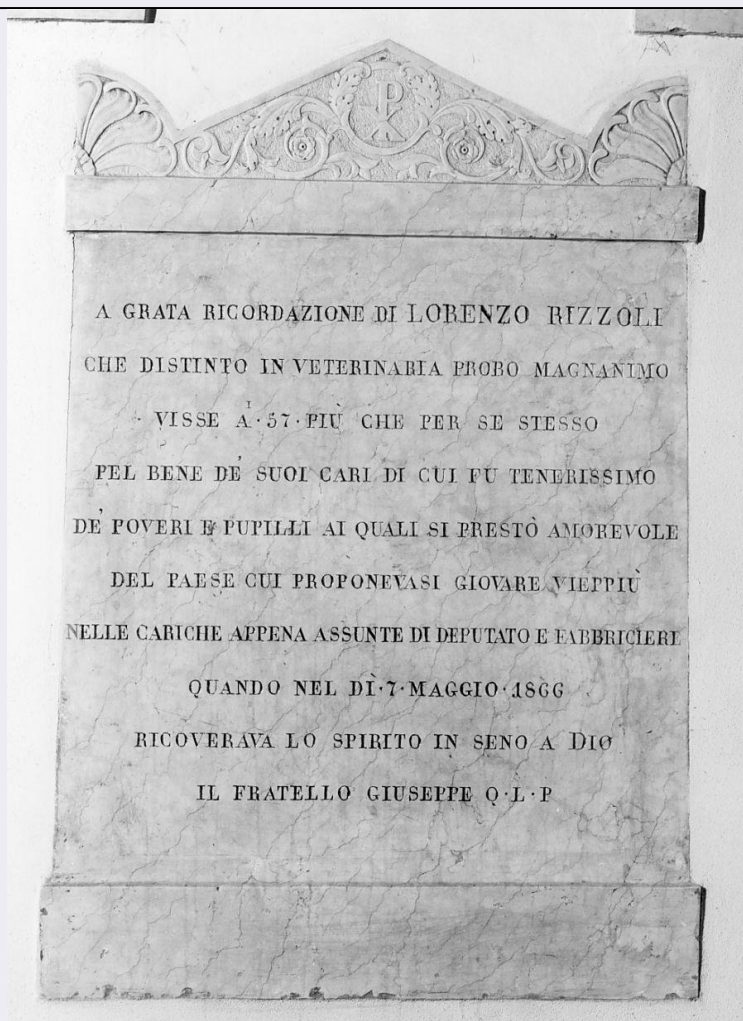 A GRATA RICORDAZIONE DI LORENZO RIZZOLI
CHE DISTINTO IN VETERINARIA PROBO MAGNANIMO
VISSE A͛I·57·PIÙ CHE PER SE STESSO
PEL BENE DE' SUOI CARI DI CUI FU TENERISSIMO
DE' POVERI E PUPILLI AI QUALI SI PRESTÒ AMOREVOLE
DEL PAESE CUI PROPONEVASI GIOVARE VIEPPIÙ
NELLE CARICHE APPENA ASSUNTE DI DEPUTATO E FABBRICIERE
QUANDO NEL DÌ·7·MAGGIO·1866
RICOVERAVA LO SPIRITO IN SENO A DIO
IL FRATELLO GIUSEPPE Q·L·P